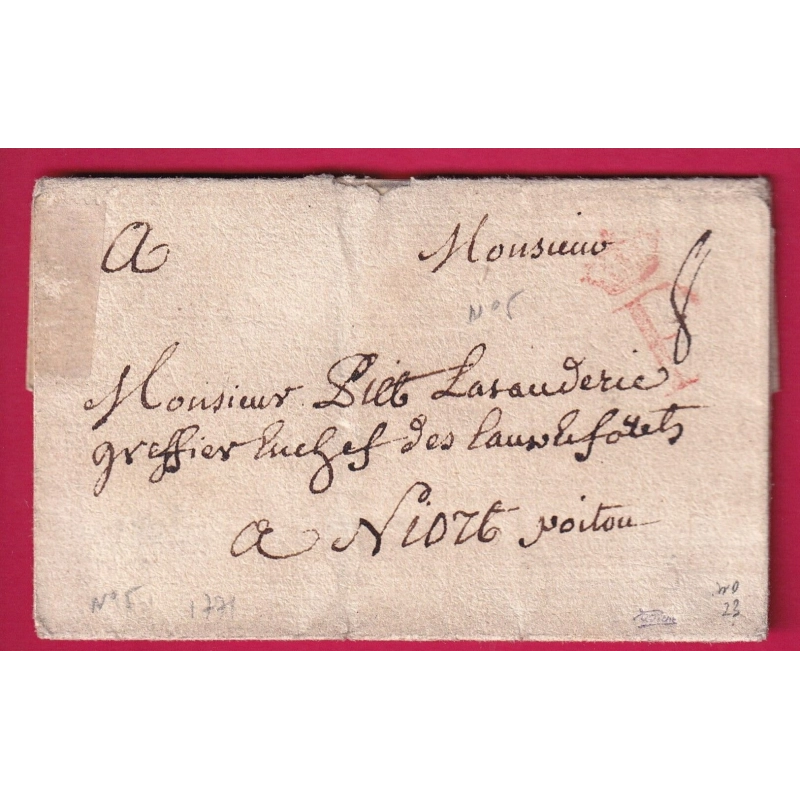 A Monsieur
8
N° 5
Monsieur Piet Lasauderie
greffier Enchef des Eauxetforets
A Niort poitou
N° 5 1771
23